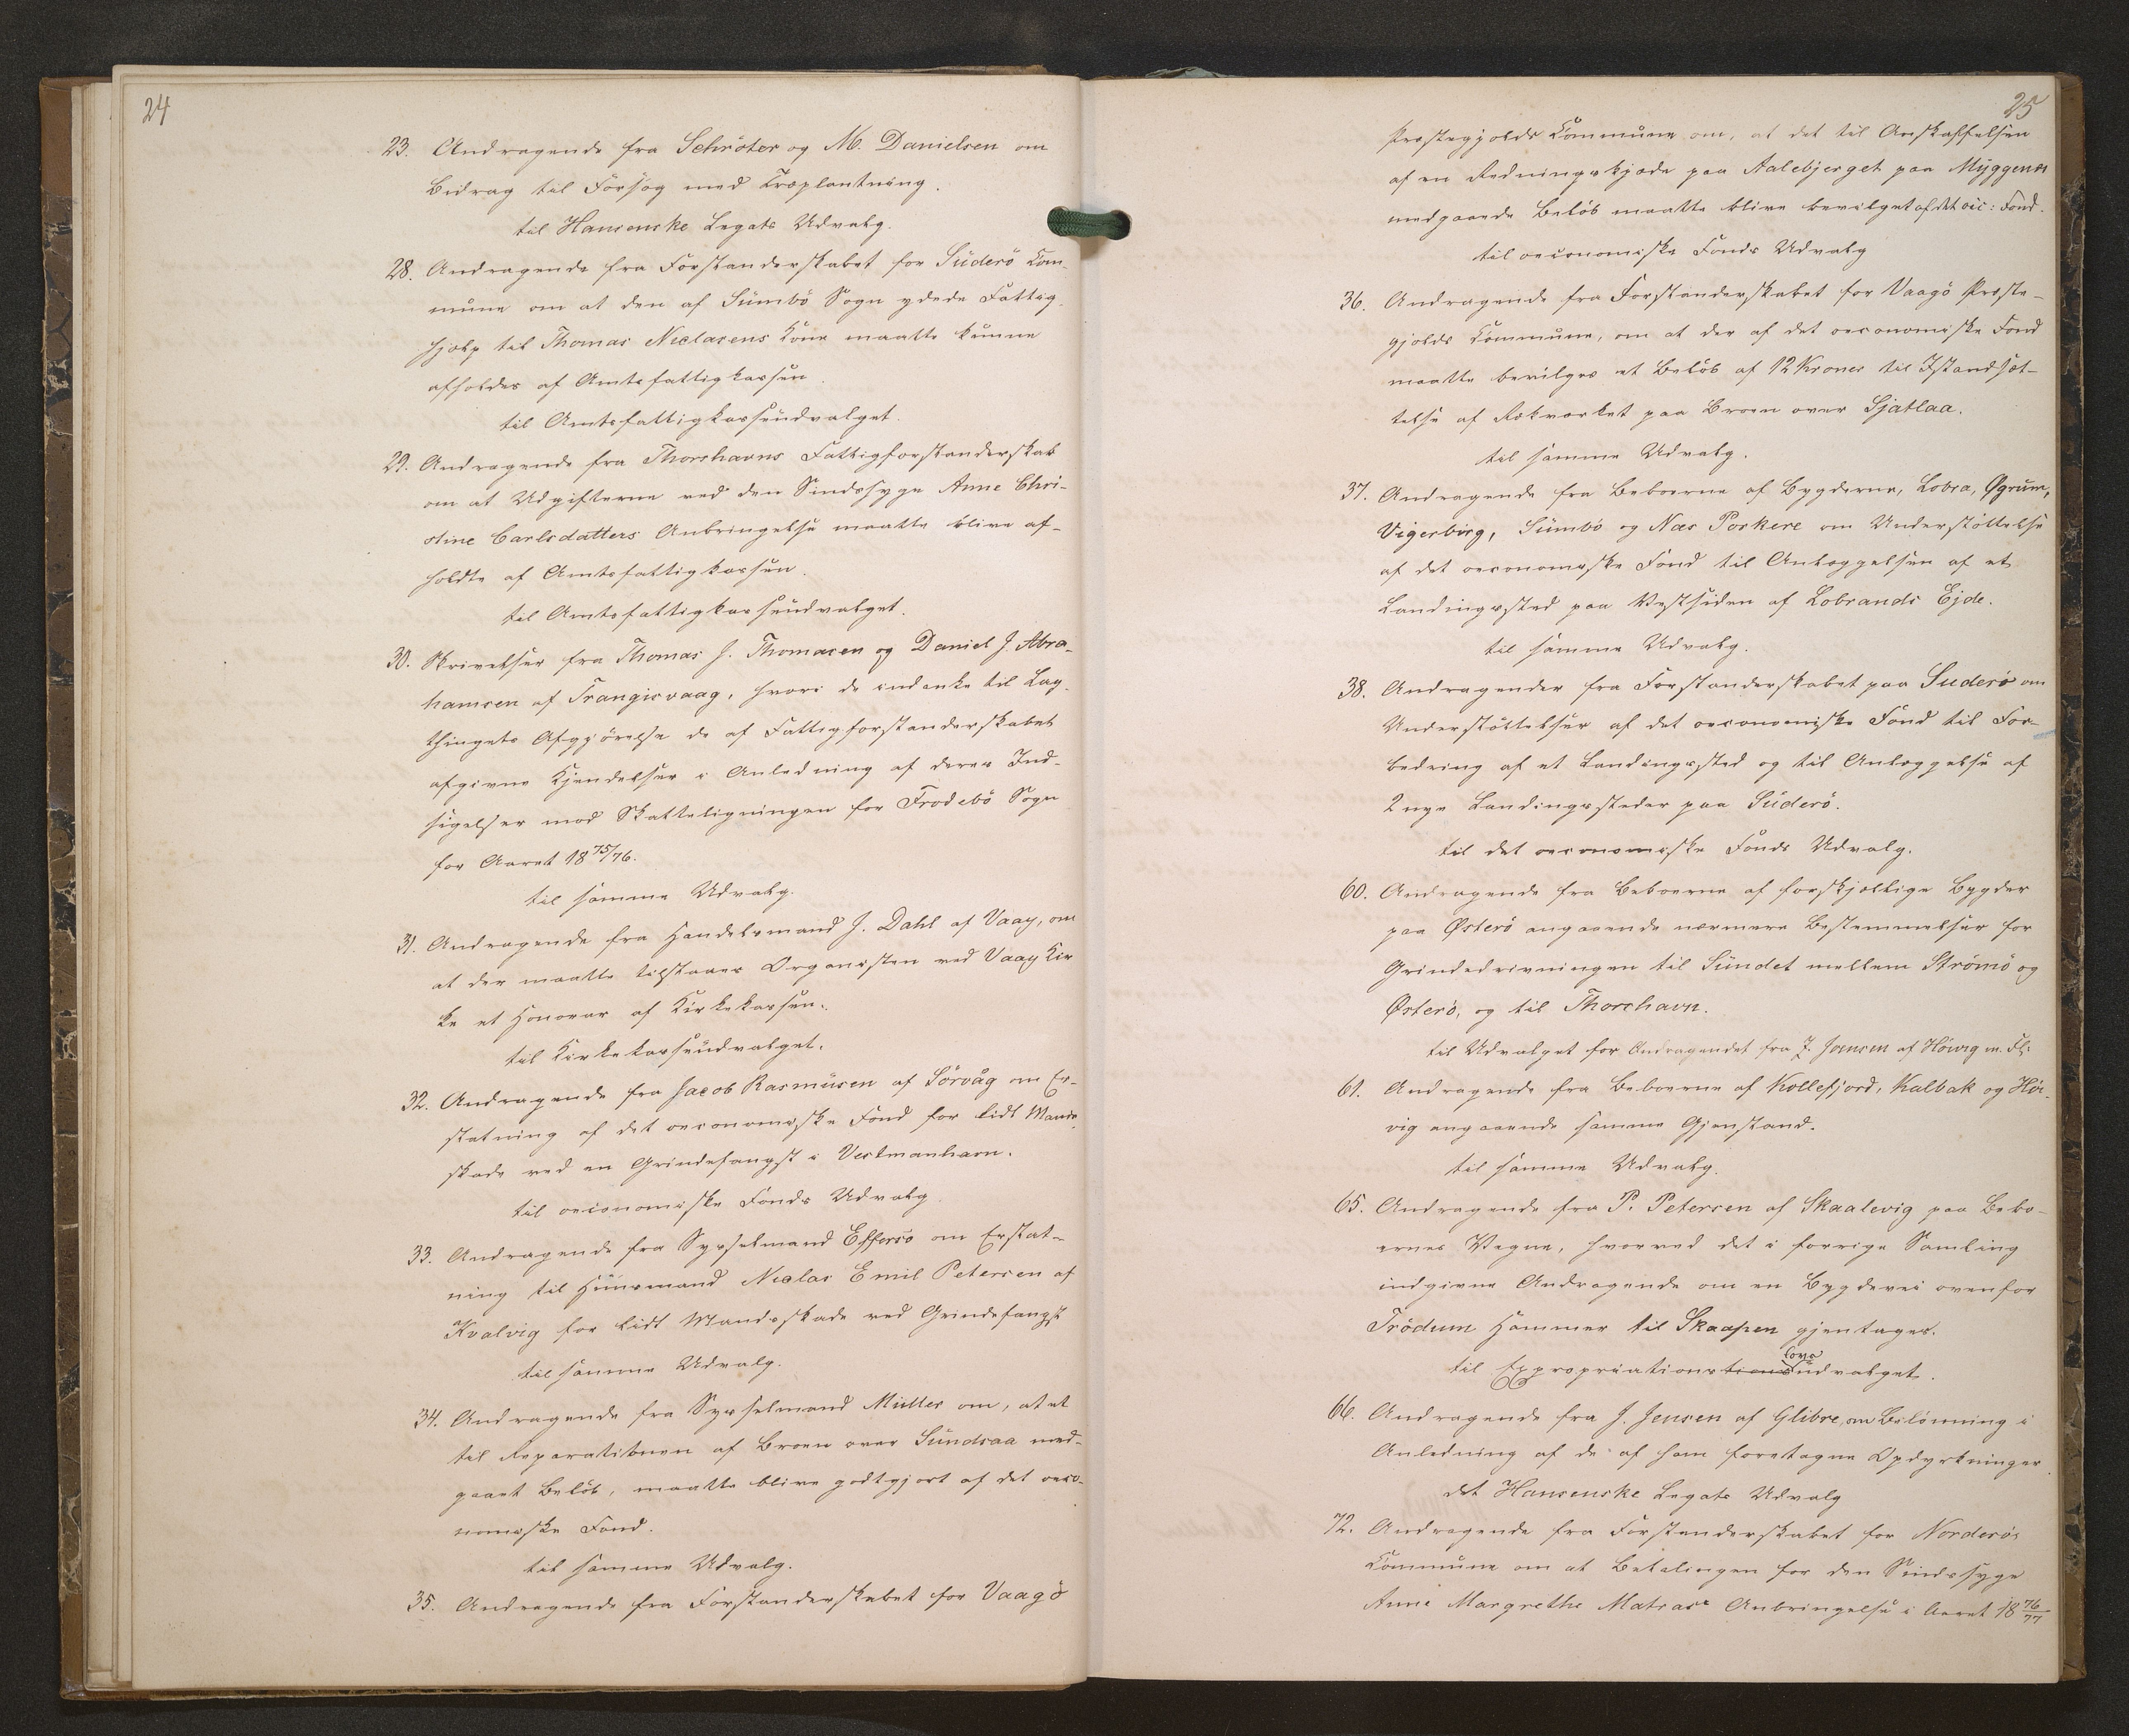 24
23. Andragende fra Schröter og M. Danielsen om
Bidrag til Forsøg med Træplantning.
til Hansenske Legats Udvalg.
28. Andragende fra Forstanderskabet for Süderö Kom-
mune om at den af Sümbö Sogn ydede Fattig-
hjælp til Thomas Niclasens Kone maatte kunne
afholdes af Amtsfattigkassen.
til Amtsfattigkasseudvalget.
29. Andragende fra Thorshavns Fattigforstanderskab
om at Udgifterne ved den Sindssyge Anne Chri-
stine Carlsdatters Anbringelse maatte blive af-
holdte af Amtsfattigkassen.
til Amtsfattigkasseudvalget.
30. Skrivelser fra Thomas J. Thomasen og Daniel J. Abra-
hamsen af Trangisvaag, hvori de indanke til Lag-
thingets Afgjörelse de af Fattigforstanderskabet
afgivne Kjendelser i Anledning af deres Ind-
sigelser mod Skatteligningen for Frodebö Sogn
for Aaret 1875/76.
til samme Udvalg.
31. Andragende fra Handelsmand J. Dahl af Vaag, om
at der maatte tilstaaes Organisten ved Vaag Kir
ke et Honorar af Kirkekassen.
til Kirkekasseudvalget.
32. Andragende fra Jacob Rasmüsen af Sörvåg om Er-
statning af det oeconomiske Fond for lidt Mands-
skade ved en Grindefangst i Vestmanhavn.
til oeconomiske Fonds Udvalg
33. Andragende fra Sysselmand Effersö om Erstat-
ning til Huusmand Niclas Emil Petersen af
Kvalvig for lidt Mandsskade ved Grindefangst
til samme Udvalg.
34. Andragende fra Sysselmand Müller om, at et
til Reparationen af Broen over Sündsaa med-
gaaet Belöb, maatte blive godtgjort af det oeco-
nomiske Fond.
til samme Udvalg.
35. Andragende fra Forstanderskabet for Vaagö
25
Præstegjelds Kommune om, at det til Anskaffelsen
af en Redningskjæde paa Aalebjerget paa Myggenæs
medgaaede Belöb maatte blive bevilget af det oec: Fond.
til oeconomiske Fonds Udvalg
36. Andragende fra Forstanderskabet for Vaagö Præste-
gjelds Kommune, om at der af det oeconomiske Fond
maatte bevilges et Belöb af 12 Kroner til Istandsæt-
telse af Rækværket paa Broen over Sjatlaa.
til samme Udvalg.
37. Andragende fra Beboerne af Bygderne, Lobra, Øgrum,
Vigerbirg, Sümbö og Næs Porkere om Understöttelse
af det oeconomiske Fond til Anlæggelsen af et
Landingssted paa Vestsiden af Lobrands Ejde.
til samme Udvalg.
38. Andragender fra Forstanderskabet paa Suderö om
Understöttelser af det oeconomiske Fond til For-
bedring af et Landingssted og til Anlæggelse af
2 nye Landingssteder paa Süderö.
til det oeconomiske Fonds Udvalg.
60. Andragende fra Beboerne af forskjellige Bygder
paa Østerö angaaende nærmere Bestemmelser for
Grindedrivningen til Sundet mellem Strömö og
Østerö, og til Thorshavn.
til Udvalget for Andragendet fra J. Jensen af Höivig m. Fl:
61. Andragende fra Beboerne af Kollefjord, Kalbak og Höi-
vig angaaende samme Gjenstand.
til samme Udvalg.
65. Andragende fra P. Petersen af Skaalevig paa Bebo-
ernes Vegne, hvorved det i forrige Samling
indgivne Andragende om en Bygdevei ovenfor
Trödum Hammer til Skaapen gjentages.
til Expropriationslovsudvalget.
66. Andragende fra J. Jensen af Glibre, om Belönning i
Anledning af de af ham foretagne Opdyrkninger
det Hansenske Legats Udvalg
72. Andragende fra Forstanderskabet for Norderös
Kommune om at Betalingen for den Sindssyge
Anne Margrethe Matras's Anbringelse i Aaret 1876/77